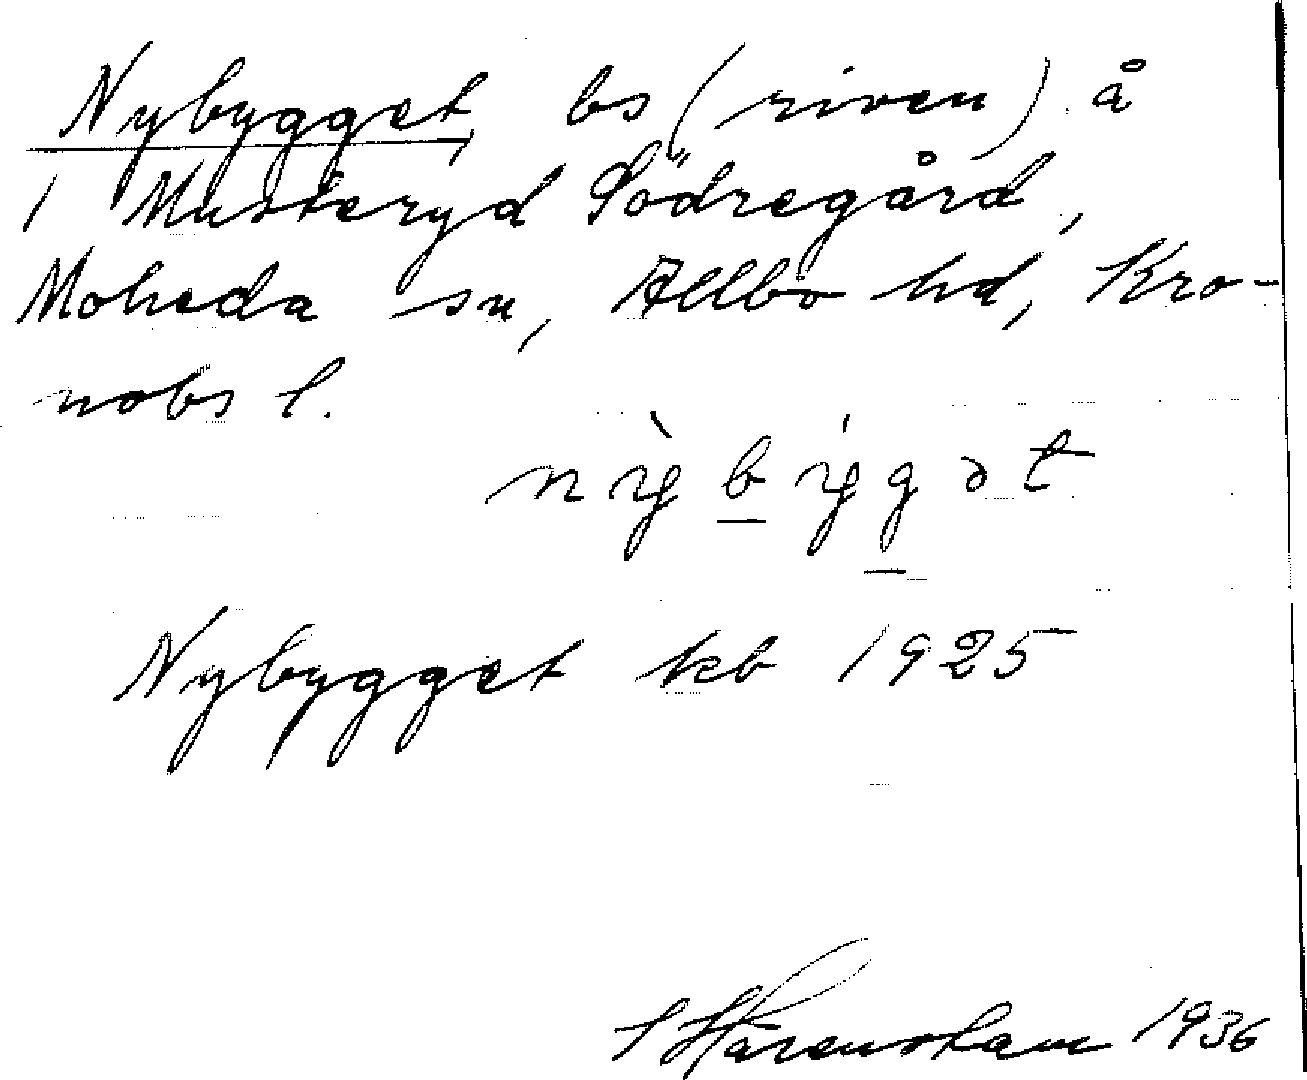 Nybygget, bs (riven) å
1 Musteryd Södregård,
Moheda sn, Allbo hd, Kro-
nobs l.
nỳbýgət
Nybygget kb 1925
1936